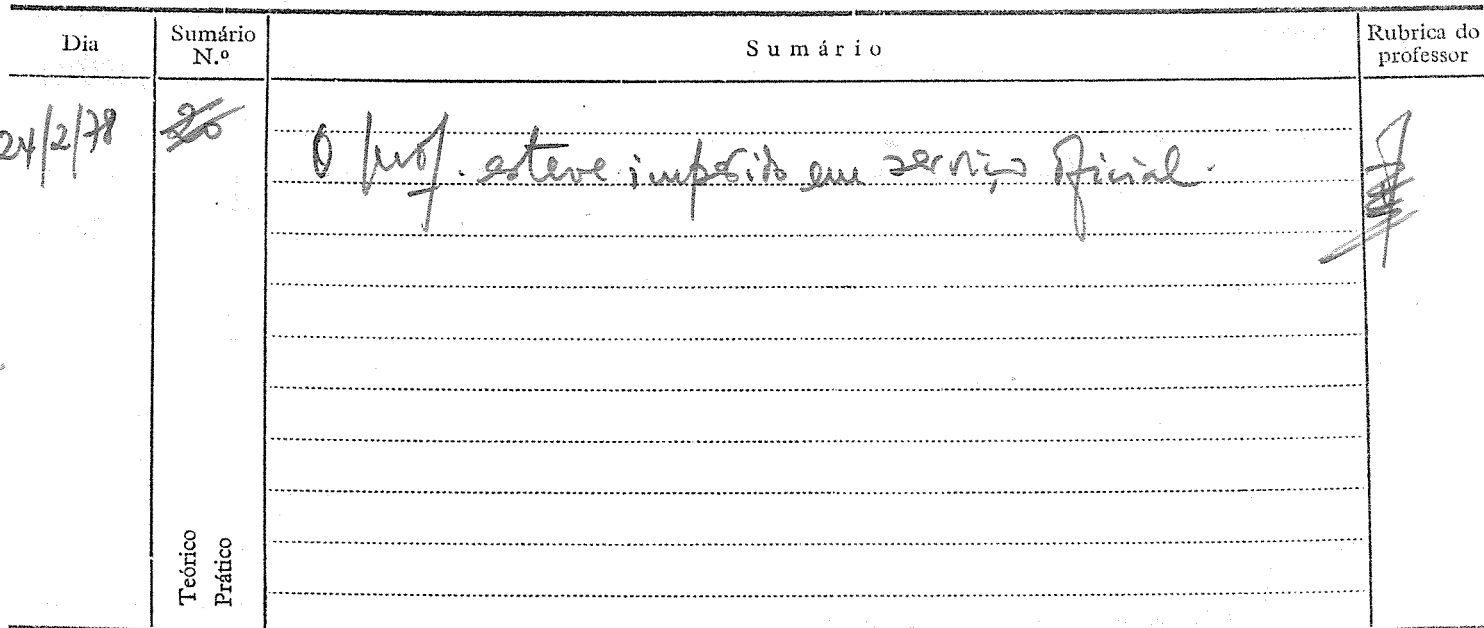 Dia
Sumário N.º
Sumário
Rubrica do professor
24/2/78
20
O prof. esteve impedido em serviço oficial.
Teórico
Prático